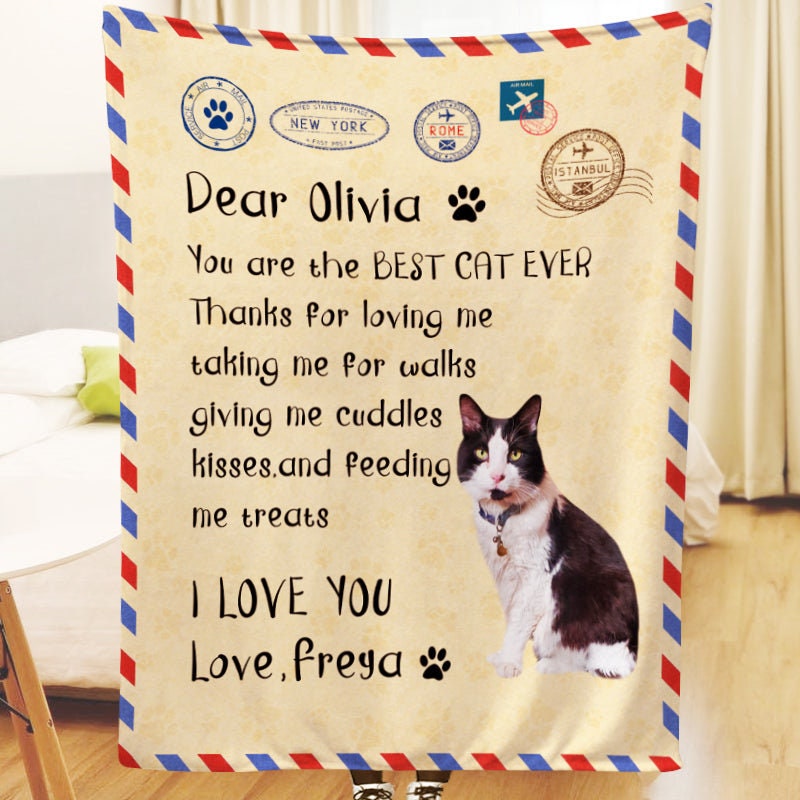 AIR MAIL
SERVICE
POST
UNITED STATES POSTAGE
NEW YORK
FAST POST
ROME
AIR MAIL
POSTAL SERVICE
ISTANBUL
Dear Olivia
You are the BEST CAT EVER
Thanks for loving me
taking me for walks
giving me cuddles
kisses,and feeding
me treats
I LOVE YOU
Love,Freya